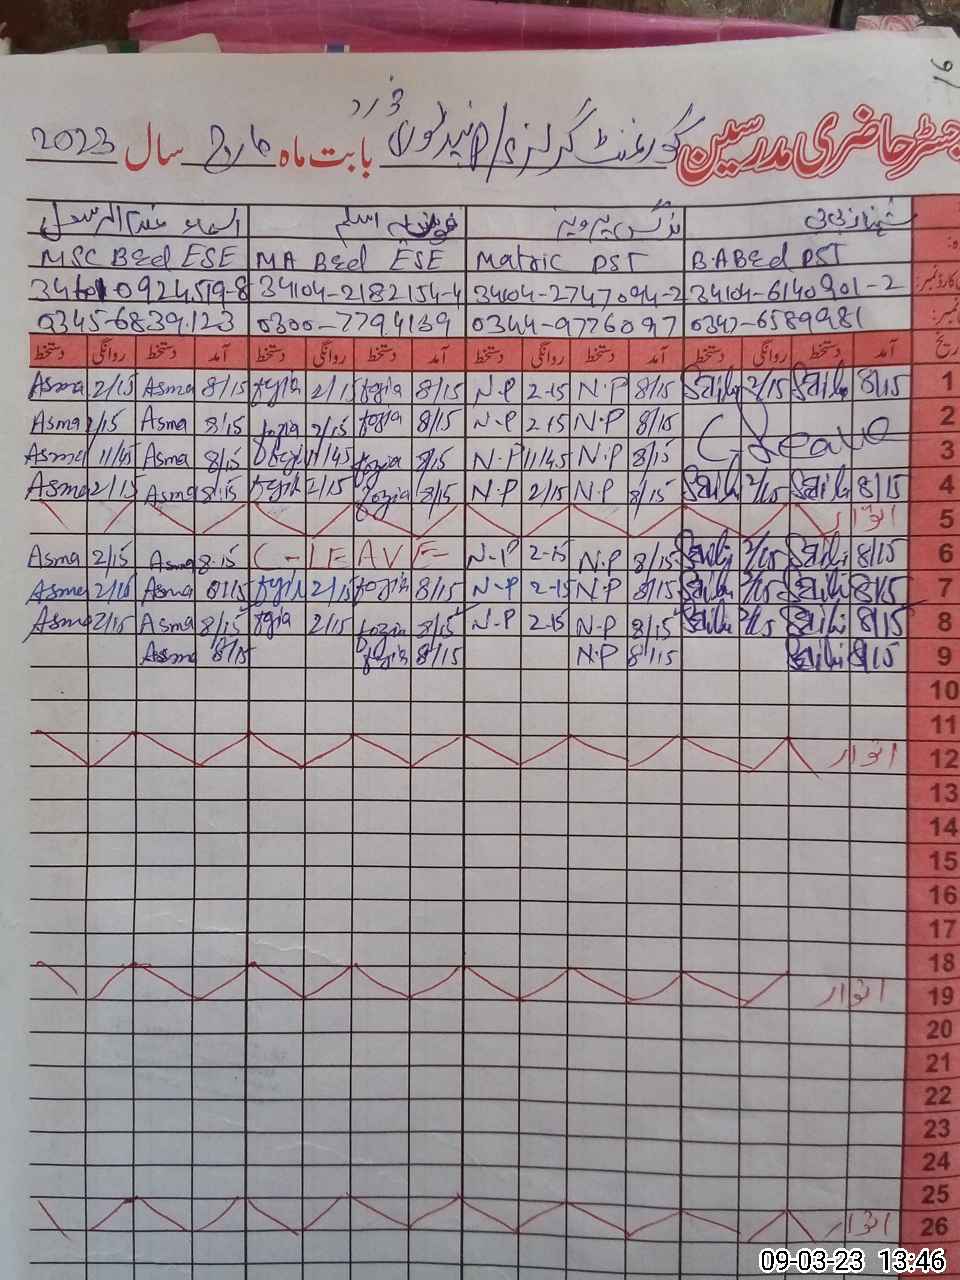 16
رجسٹر حاضری مدرسین گورنمنٹ گرلز بابت ماہ مارچ سال 2023
شہناز بی بی نرگس پروین فوزیہ اسلم اسماء
B.A B.Ed PST Matric PST MA B.ed ESE MSC B.ed ESE
34104-6140901-2 34104-2747094-2 34104-2182154-4 0924519-8
0347-6589981 0344-9776097 0300-7794139 0345-6839123
تاریخ آمد دستخط روانگی دستخط آمد دستخط روانگی دستخط آمد دستخط روانگی دستخط آمد دستخط روانگی دستخط
1 8/15 2/15 8/15 N.P 2-15 N-P 8/15 fozia 2/15 fozia 8/15 Asma 2/15 Asma
2 C-Leave 8/15 N.P 2-15 N-P 8/15 fozia 2/15 fozia 8/15 Asma 2/15 Asma
3 8/15 N.P 11/45 N-P 8/15 fozia 11/45 fozia 8/15 Asma 11/45 Asma
4 8/15 2/15 8/15 N-P 2/15 N-P 8/15 fozia 2/15 fozia 8:15 Asma 2/15 Asma
5 اتوار
6 8/15 2/15 8/15 N.P 2-15 N-P C-LEAVE 8-15 Asma 2/15 Asma
7 8/15 2/15 8/15 N-P 2-15 N-P 8/15 fozia 2/15 fozia 8/15 Asma 2/15 Asma
8 8/15 2/15 8/15 N-P 2-15 N-P 8/15 fozia 2/15 fozia 8/15 Asma 2/15 Asma
9 8/15 8/15 N.P 8/15 fozia 8/15 Asma
10
11
12 اتوار
13
14
15
16
17
18
19 اتوار
20
21
22
23
24
25
26 اتوار
09-03-23 13:46